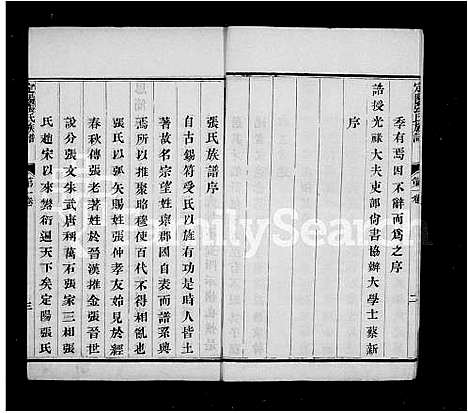 季有焉因不辭而為之序
誥授光祿大夫吏部尚書協辦大學士蔡新
序
定陽張氏族譜
第一卷
二
張氏族譜序
自古錫符受氏以族有功是時人皆土
著故名宗望姓東郡因自表而譜系興
焉所以推聚略穆使百代不得相亂也
張氏以弧矢賜姓張仲孝友始見於經
春秋傳張老著姓於晉漢推金張晉世
說分張文朱武唐稱萬石張家三相張
氏趙宋以來繁衍遍天下矣定陽張氏
定陽張氏族譜
第一卷
三
FamilySearch